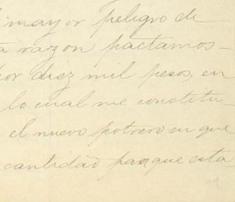 mayor peligro de
a razon pactamos-
por diez mil pesos, en
lo cual me constitu-
el nuevo potrero en que
cantidad porque esta